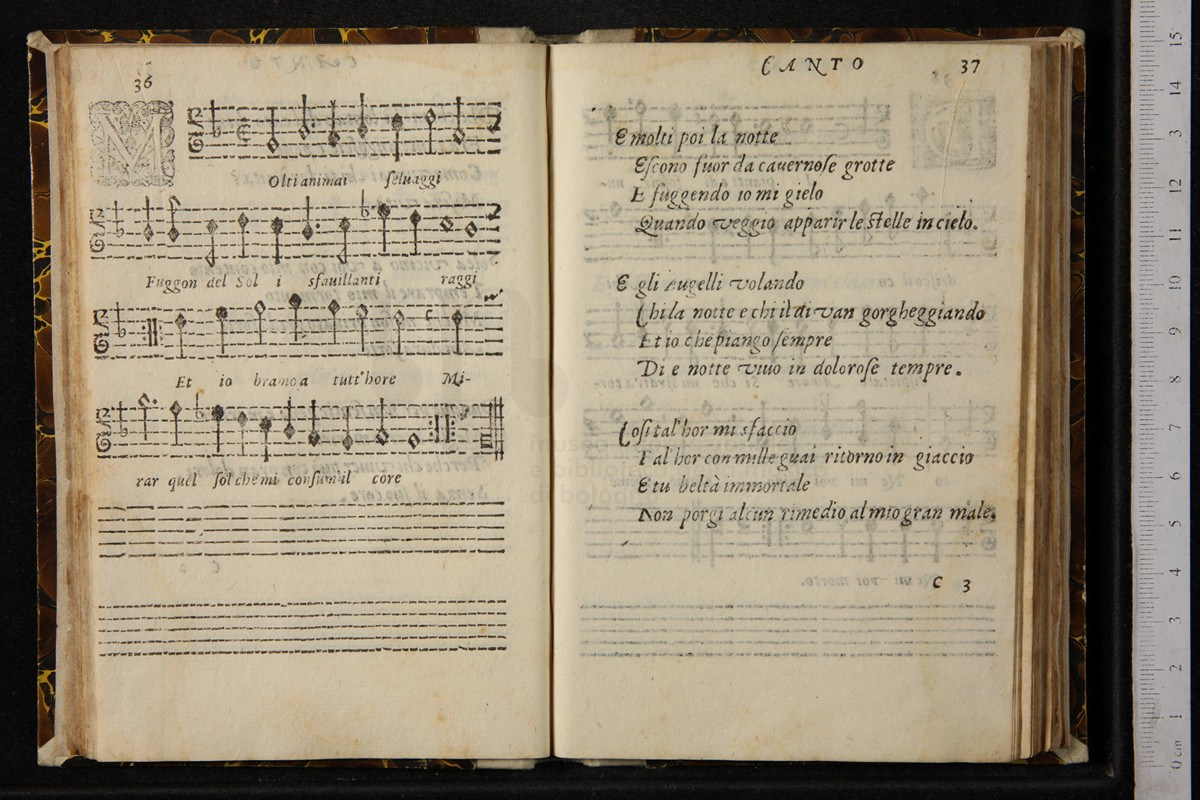 36
MOlti animai seluaggi
Fuggon del Sol i sfauillanti raggi
Et io bramo a tutt'hore Mi-
rar quel sol che mi consum'il core
CANTO 37
E molti poi la notte
Escono fuor da cauernose grotte
E fuggendo io mi gielo
Quando veggio apparir le stelle in cielo.
E gli Augelli volando
Chi la notte e chi il di van gorgheggiando
Et io che piango sempre
Di e notte viuo in dolorose tempre.
Cosi tal'hor mi sfaccio
Tal'hor con mille guai ritorno in giaccio
E tu beltà immortale
Non porgi alcun rimedio al mio gran male.
C 3
0 cm 1 2 3 4 5 6 7 8 9 10 11 12 13 14 15